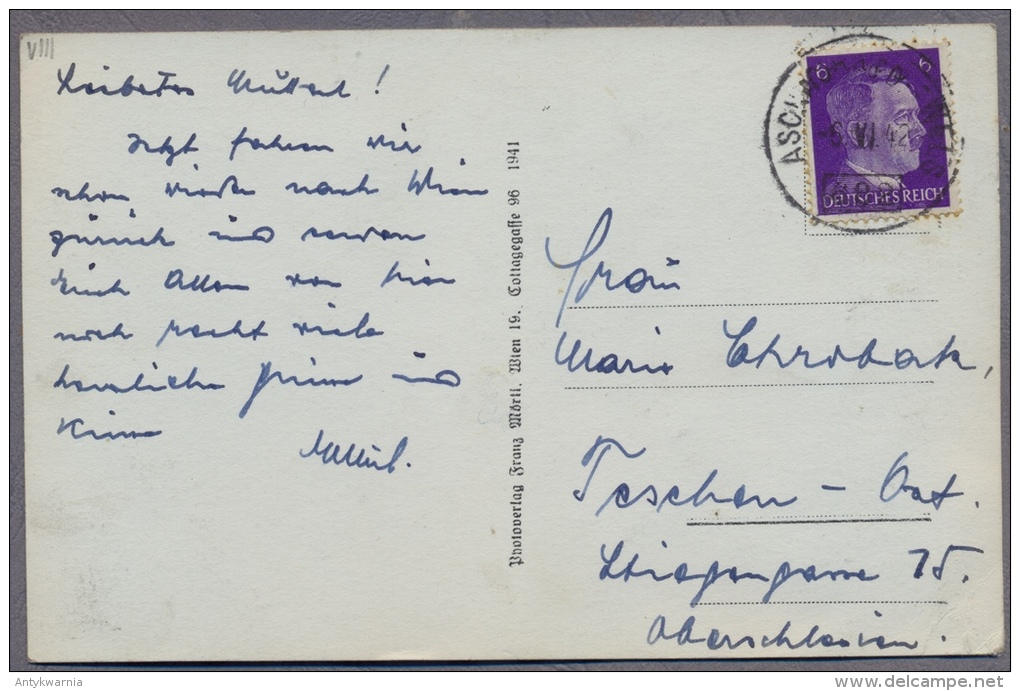 VIII
Liebstes Mutterl!
Jetzt fahren wir
schon wieder nach Wien
zurück und senden
Euch Allen von hier
noch recht viele
herzliche Grüsse und
Küsse
6 6
-6.VI.42
DEUTSCHES REICH
Photoverlag Franz Mörtl, Wien 19., Cottagegasse 96 1941
Frau
Marie Chrobak,
Teschen - Ost.
Stiegengasse 15.
Oberschlesien.
Antykwarnia
delcampe.net